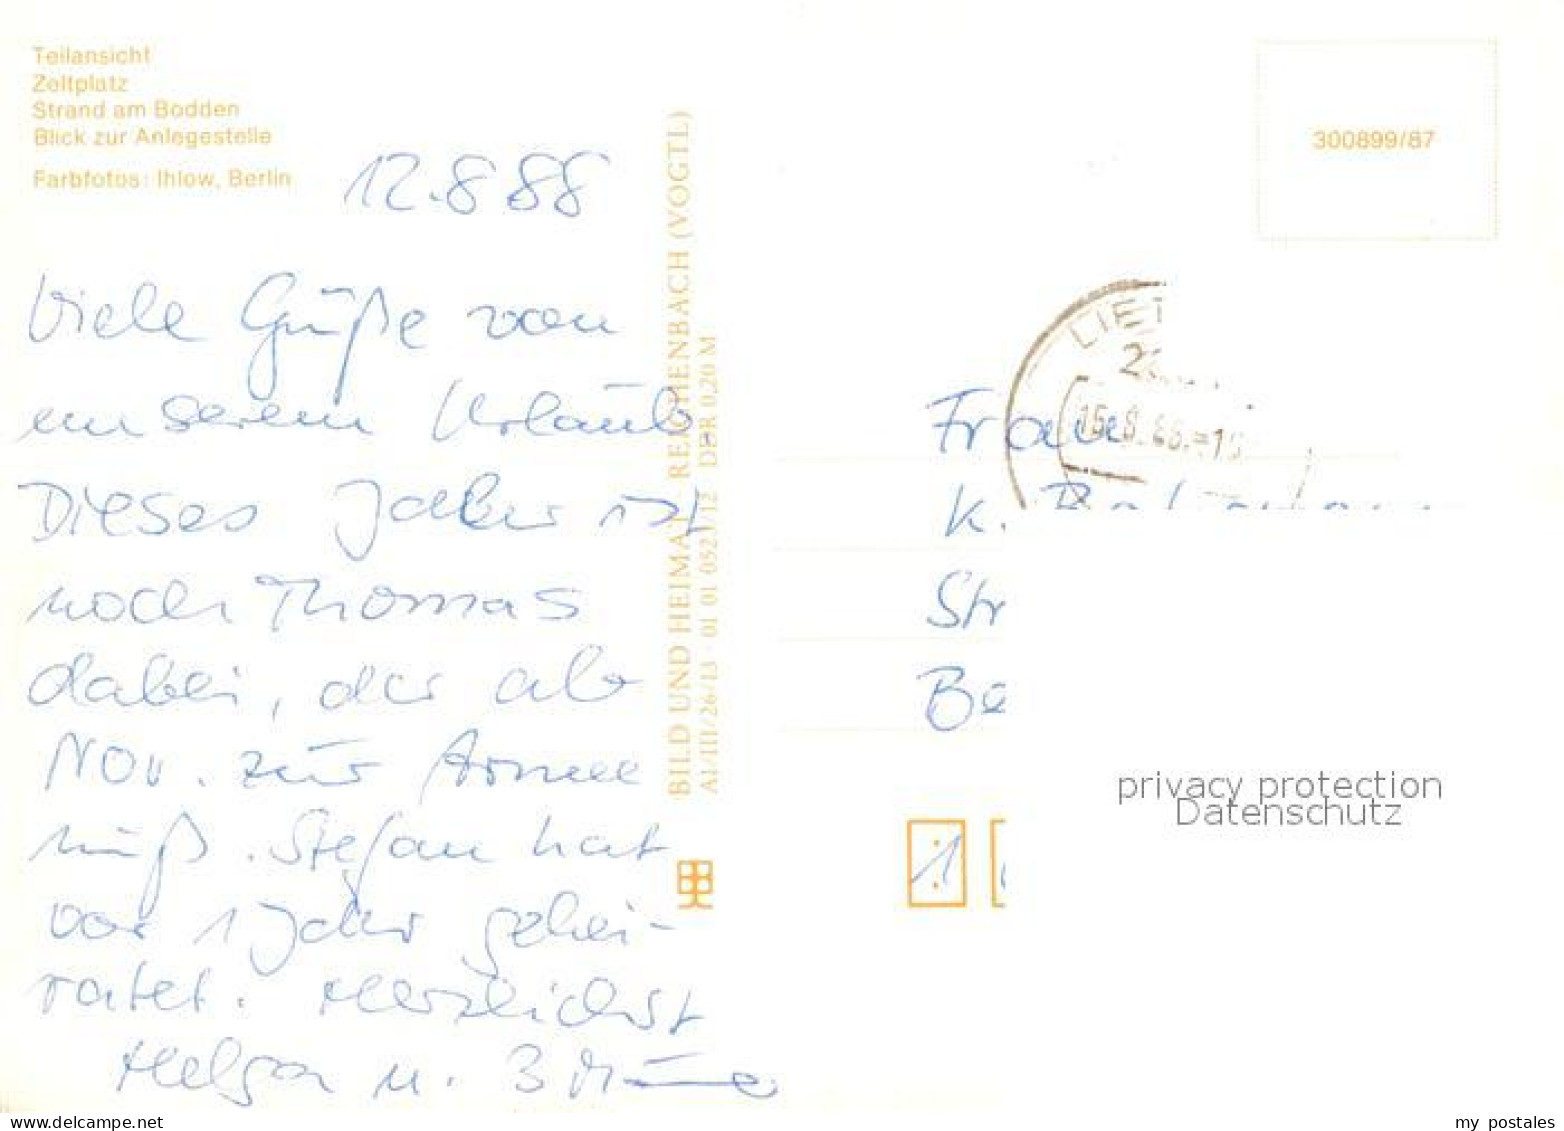 Teilansicht
Zeltplatz
Strand am Bodden
Blick zur Anlegestelle
Farbfotos: Ihlow, Berlin
12.8 88
Viele Grüße von
unserem Urlaub.
Dieses Jahr ist
noch Thomas
dabei, der ab
Nov. zur Armee
muß. Stefan hat
vor 1 Jahr gehei-
ratet. Herzlichst
Helga u. 3 Männe
BILD UND HEIMAT REICHENBACH (VOGTL)
A1/III/26/13 · 01 01 0523/12 DDR 0,20 M
300899/87
LIE
15.8.88.-1
Frau
K.
Str
Be
1
privacy protection
Datenschutz
delcampe.net
my_postales